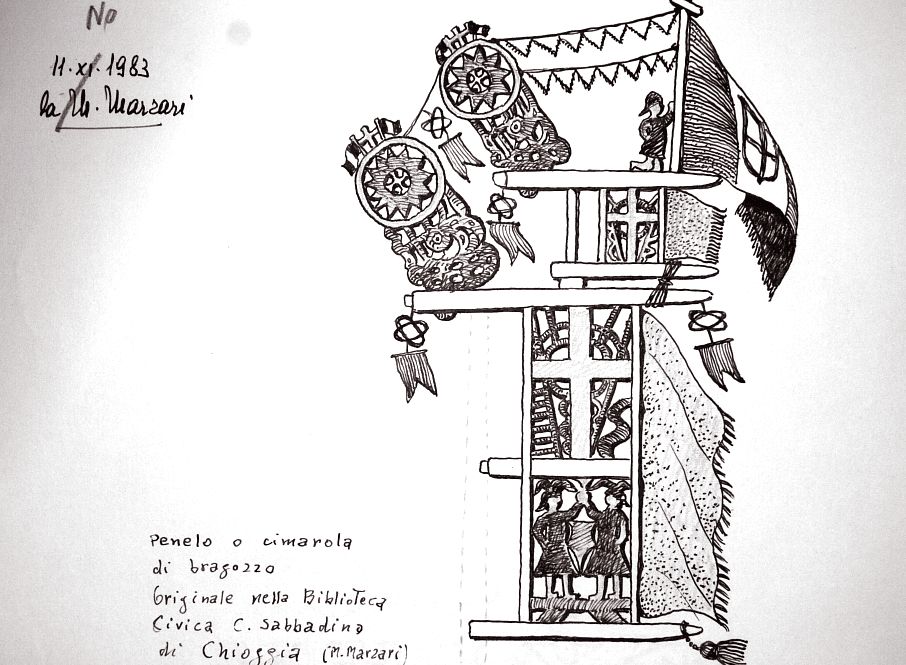 No
11.XI.1983
da M. Marzari
Penelo o cimarola
di bragozzo
Originale nella Biblioteca
Civica C. Sabbadino
di Chioggia (M. Marzari)